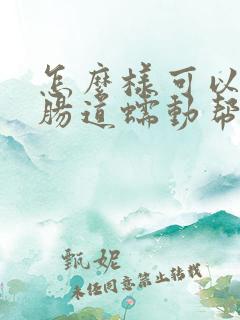 怎麼樣可以
腸道蠕動幫
甄妮
未经同意禁止转载